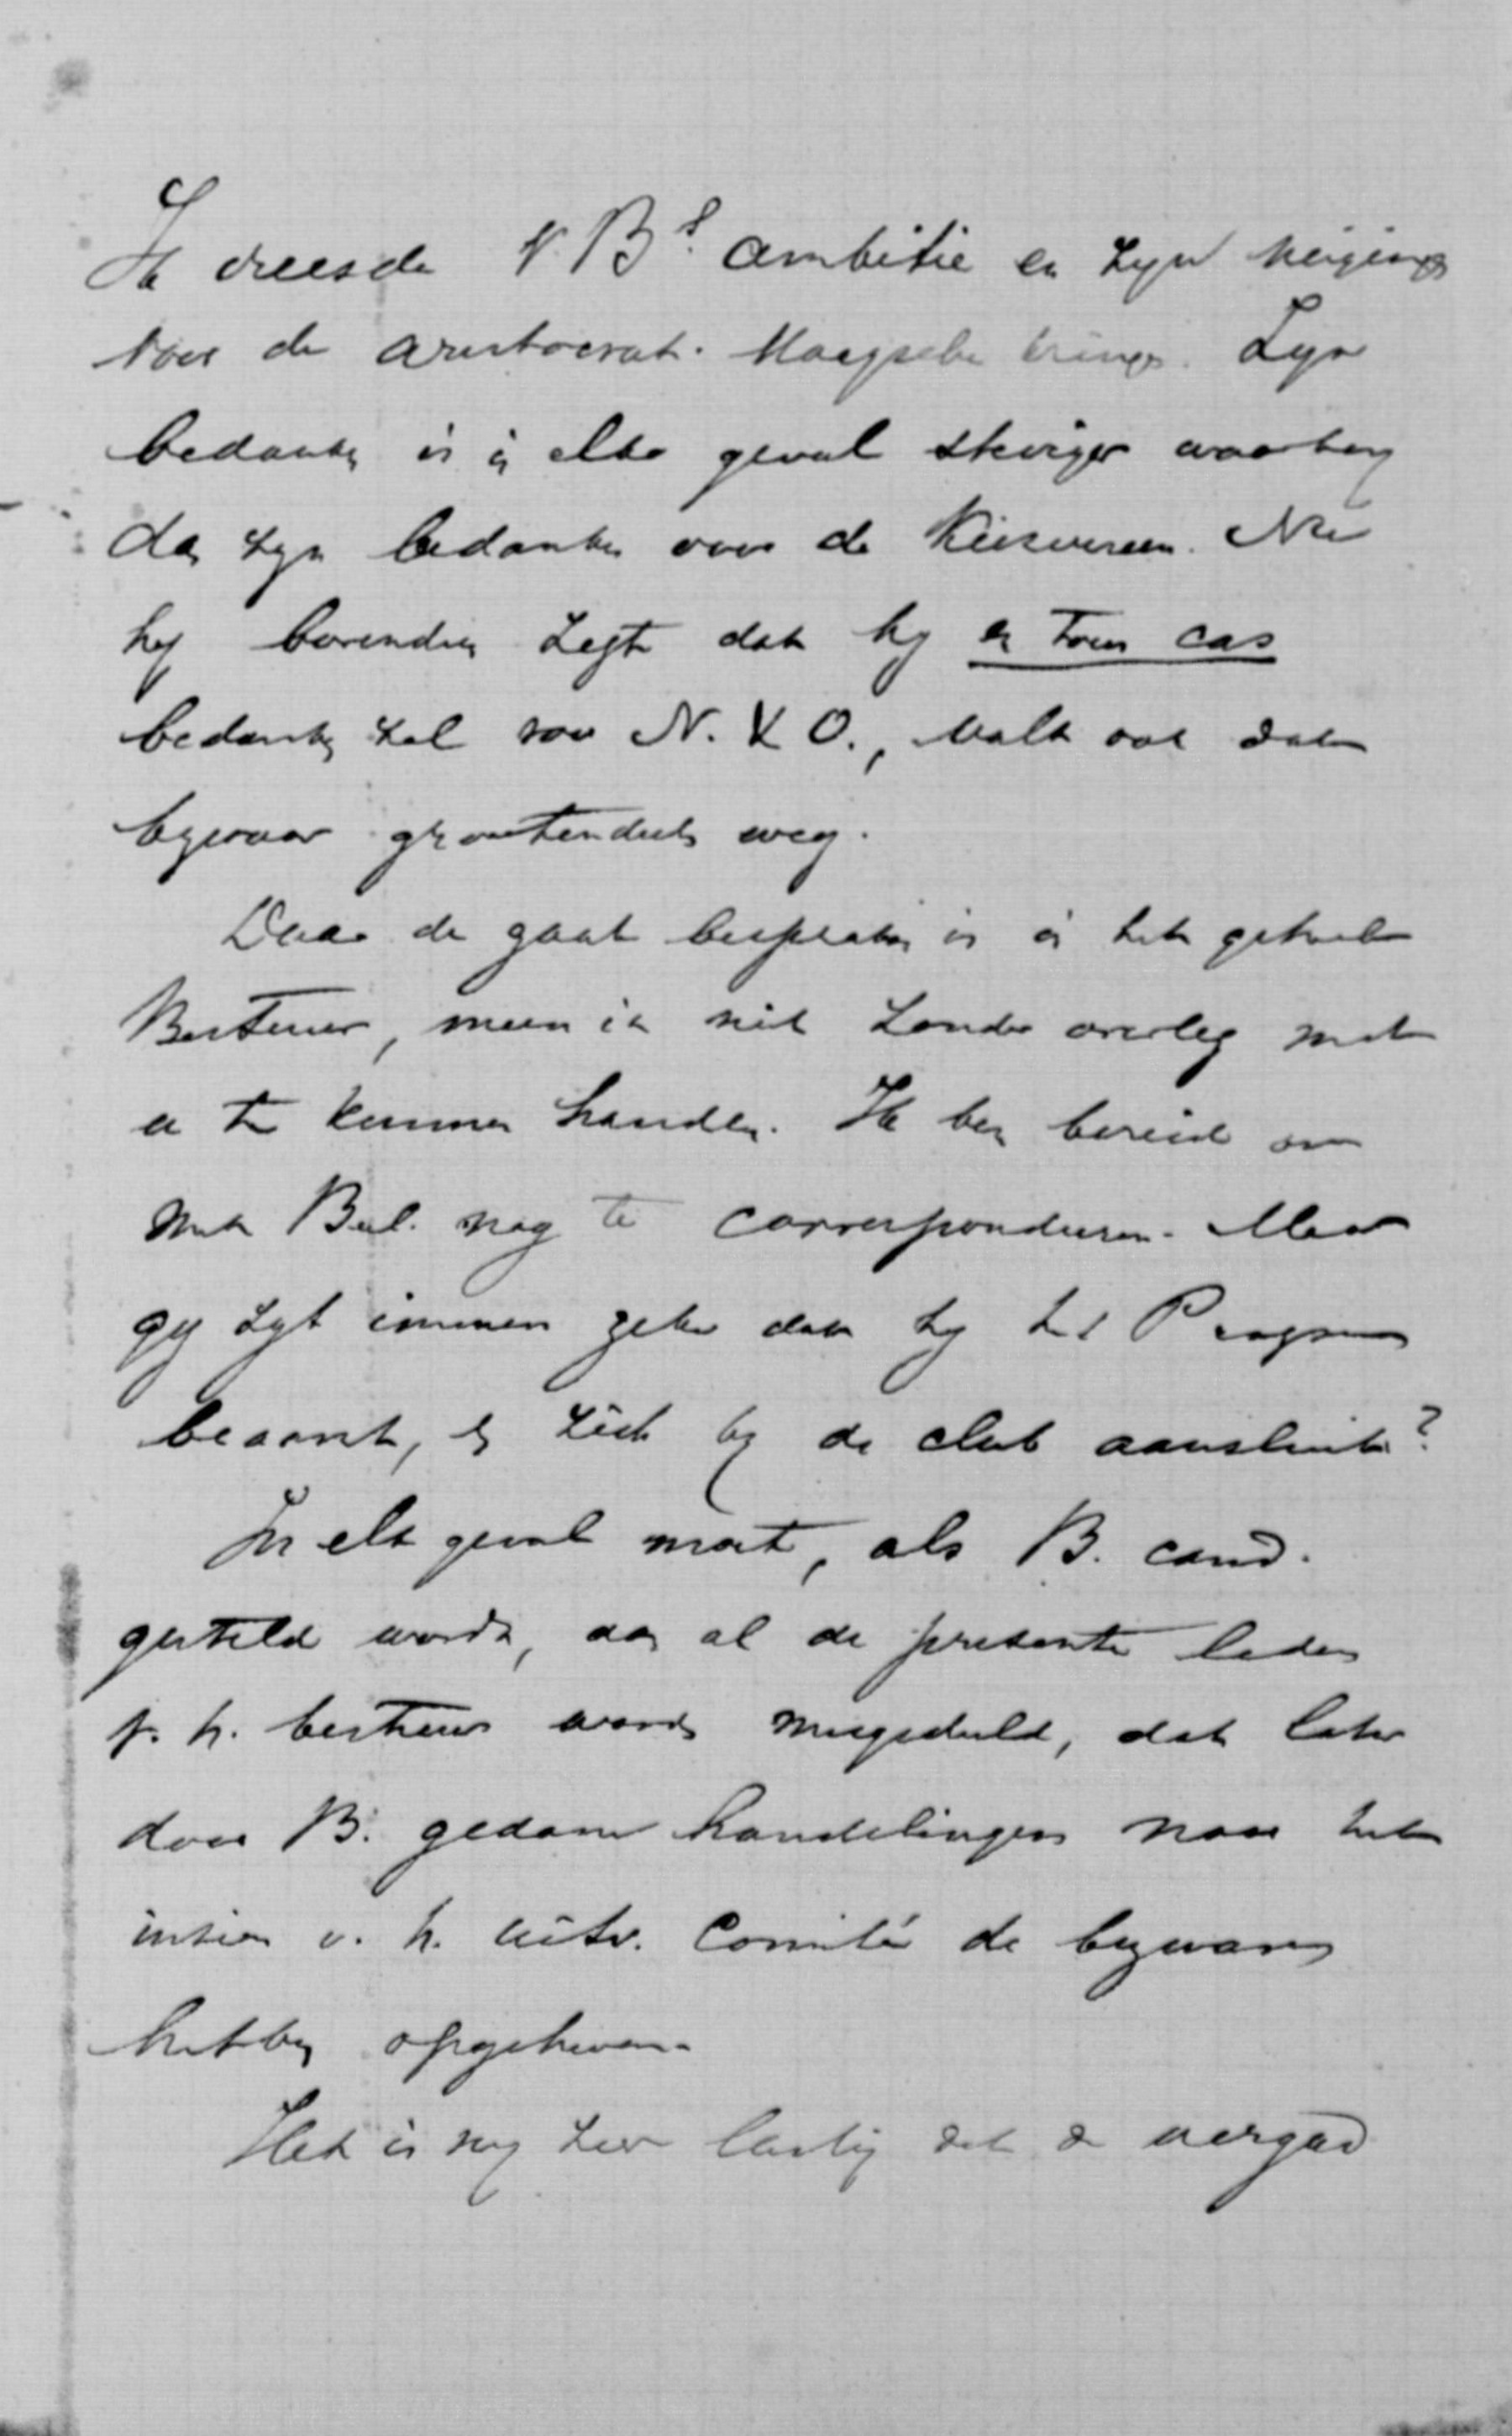 Ik vreesde v. B's ambitie en zyn neiging
voor de aristocrat. Haagsche kringen. Zyn
bedanken is in elk geval steviger waarborg
dan zyn bedanken voor de Kiesvereen. Nu
hy bovendien zegt dat hy en tous cas
bedanken zal voor N. & O., valt ook dat
bezwaar grootendeels weg.
Daar de zaak besproken is in het geheele
Bestuur, meen ik niet zonder overleg met
u te kunnen handelen. Ik ben bereid om
met Bul. nog te correspondeeren. Maar
gy zyt immers zeker dat hy het Program
beaamt, en zich by de club aansluit?
In elk geval moet, als B. cand.
gesteld wordt, aan al de presente leden
v. h. bestuur worden meegedeeld, dat later
door B. gedane handelingen naar het
inzien v. h. uitv. Comité de bezwaren
hebben opgeheven.
Het is nog zeer lastig dat de vergad